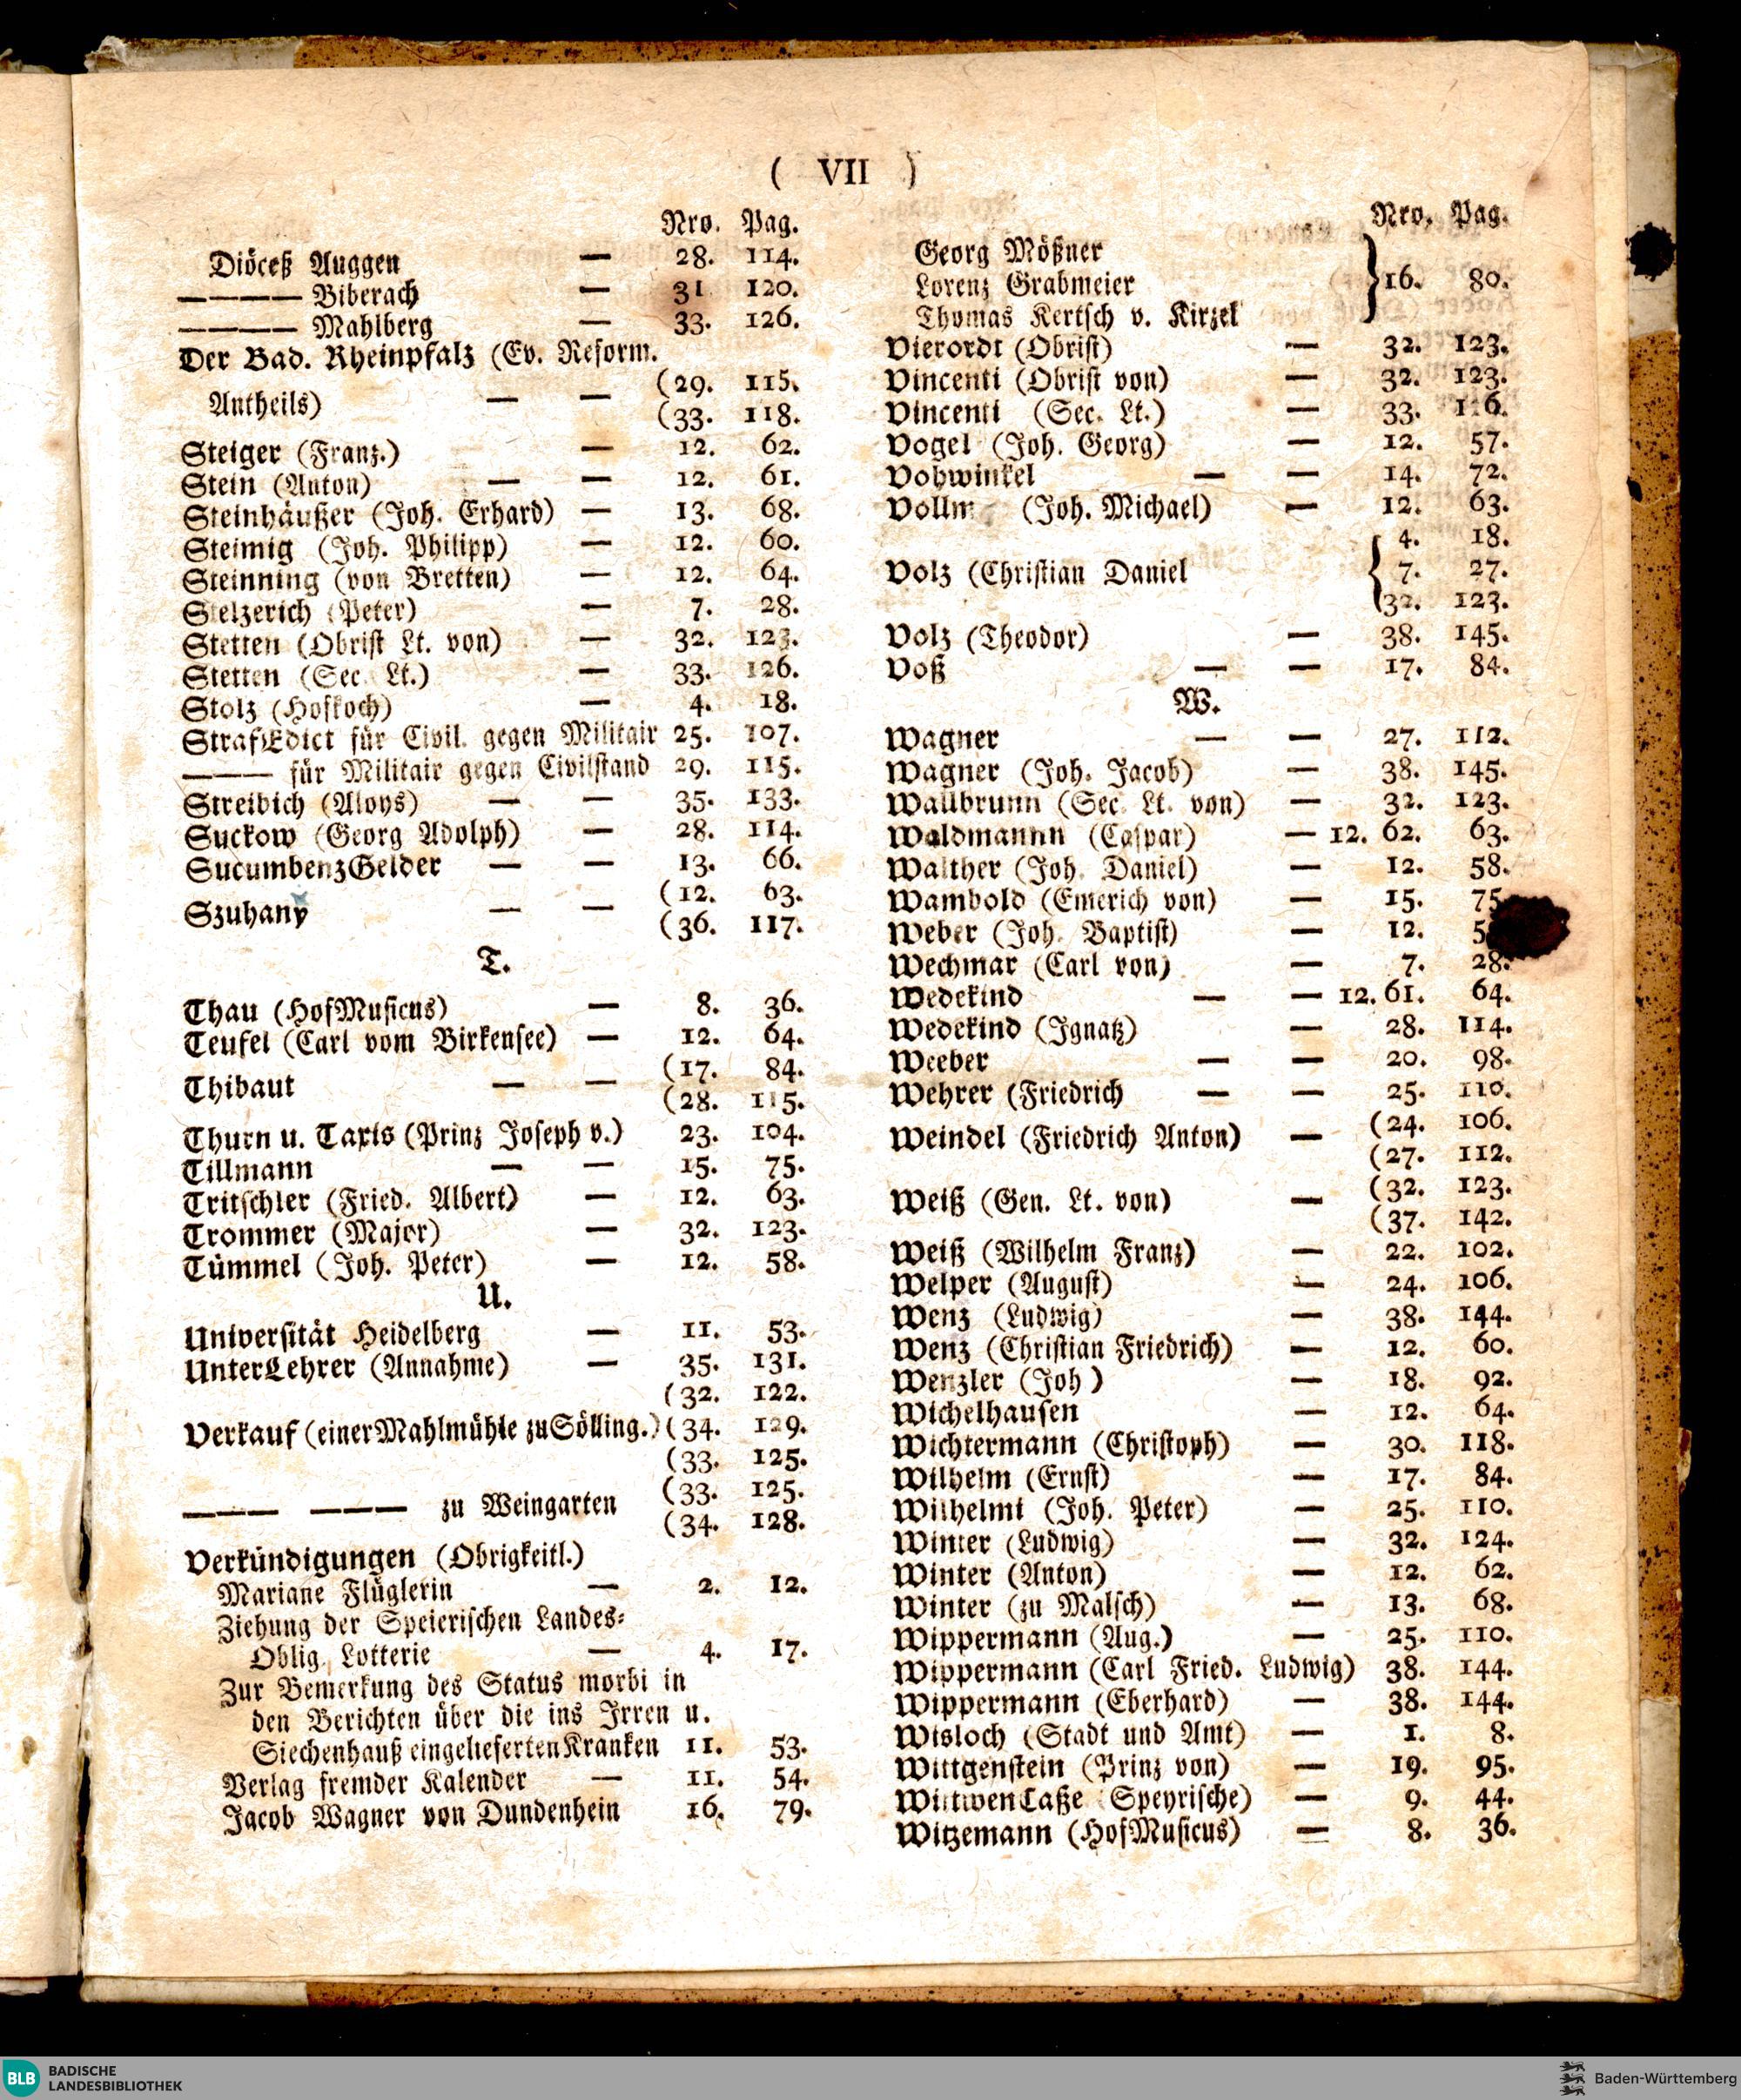 ( VII )
Nro. Pag.
Diöceß Auggen — 28. 114.
———— Biberach — 31 120.
———— Mahlberg — 33. 126.
Der Bad. Rheinpfalz (Ev. Reform.
Antheils) — — (29. 115.
(33. 118.
Steiger (Franz.) — 12. 62.
Stein (Anton) — — 12. 61.
Steinhäußer (Joh. Erhard) — 13. 68.
Steimig (Joh. Philipp) — 12. 60.
Steinning (von Bretten) — 12. 64.
Stelzerich (Peter) — 7. 28.
Stetten (Obrist Lt. von) — 32. 123.
Stetten (Sec. Lt.) — 33. 126.
Stolz (Hofkoch) — 4. 18.
StrafEdict für Civil. gegen Militair 25. 107.
——— für Militair gegen Civilstand 29. 115.
Streibich (Aloys) — — 35. 133.
Suckow (Georg Adolph) — 28. 114.
SucumbenzGelder — — 13. 66.
Szuhany — — (12. 63.
(36. 117.
T.
Thau (HofMusicus) — 8. 36.
Teufel (Carl vom Birkensee) — 12. 64.
Thibaut — — (17. 84.
(28. 115.
Thurn u. Taxis (Prinz Joseph v.) 23. 104.
Tillmann — — 15. 75.
Tritschler (Fried. Albert) — 12. 63.
Trommer (Major) — 32. 123.
Tümmel (Joh. Peter) — 12. 58.
U.
Universität Heidelberg — 11. 53.
UnterLehrer (Annahme) — 35. 131.
(32. 122.
Verkauf (einer Mahlmühle zu Sölling.) (34. 129.
(33. 125.
——— ——— zu Weingarten (33. 125.
(34. 128.
Verkündigungen (Obrigkeitl.)
Mariane Flüglerin — 2. 12.
Ziehung der Speierischen Landes-
Oblig. Lotterie — 4. 17.
Zur Bemerkung des Status morbi in
den Berichten über die ins Irren u.
Siechenhauß eingelieferten Kranken 11. 53.
Verlag fremder Kalender — 11. 54.
Jacob Wagner von Dundenhein 16. 79.
Nro. Pag.
Georg Mößner
Lorenz Grabmeier } 16. 80.
Thomas Kertsch v. Kirzel
Vierordt (Obrist) — 32. 123.
Vincenti (Obrist von) — 32. 123.
Vincenti (Sec. Lt.) — 33.
Vogel (Joh. Georg) — 12. 57.
Vohwinkel — — 14. 72.
(Joh. Michael) — 12. 63.
{ 4. 18.
Volz (Christian Daniel 7. 27.
(32. 123.
Volz (Theodor) — 38. 145.
Voß — — 17. 84.
W.
Wagner — — 27. 112.
Wagner (Joh. Jacob) — 38. 145.
Wallbrunn (Sec. Lt. von) — 32. 123.
Waldmannn (Caspar) — 12. 62. 63.
Walther (Joh. Daniel) — 12. 58.
Wambold (Emerich von) — 15. 75.
Weber (Joh. Baptist) — 12.
Wechmar (Carl von) — 7. 28.
Wedekind — — 12. 61. 64.
Wedekind (Ignatz) — 28. 114.
Weeber — — 20. 98.
Wehrer (Friedrich — — 25. 110.
Weindel (Friedrich Anton) — (24. 106.
(27. 112.
Weiß (Gen. Lt. von) — (32. 123.
(37. 142.
Weiß (Wilhelm Franz) — 22. 102.
Welper (August) — 24. 106.
Wenz (Ludwig) — 38. 144.
Wenz (Christian Friedrich) — 12. 60.
Wenzler (Joh) — 18. 92.
Wichelhausen — 12. 64.
Wichtermann (Christoph) — 30. 118.
Wilhelm (Ernst) — 17. 84.
Wilhelmi (Joh. Peter) — 25. 110.
Winter (Ludwig) — 32. 124.
Winter (Anton) — 12. 62.
Winter (zu Malsch) — 13. 68.
Wippermann (Aug.) — 25. 110.
Wippermann (Carl Fried. Ludwig) 38. 144.
Wippermann (Eberhard) — 38. 144.
Wisloch (Stadt und Amt) — 1. 8.
Wittgenstein (Prinz von) — 19. 95.
WittwenCaße (Speyrische) — 9. 44.
Witzemann (HofMusicus) — 8. 36.
BLB BADISCHE
LANDESBIBLIOTHEK
Baden-Württemberg